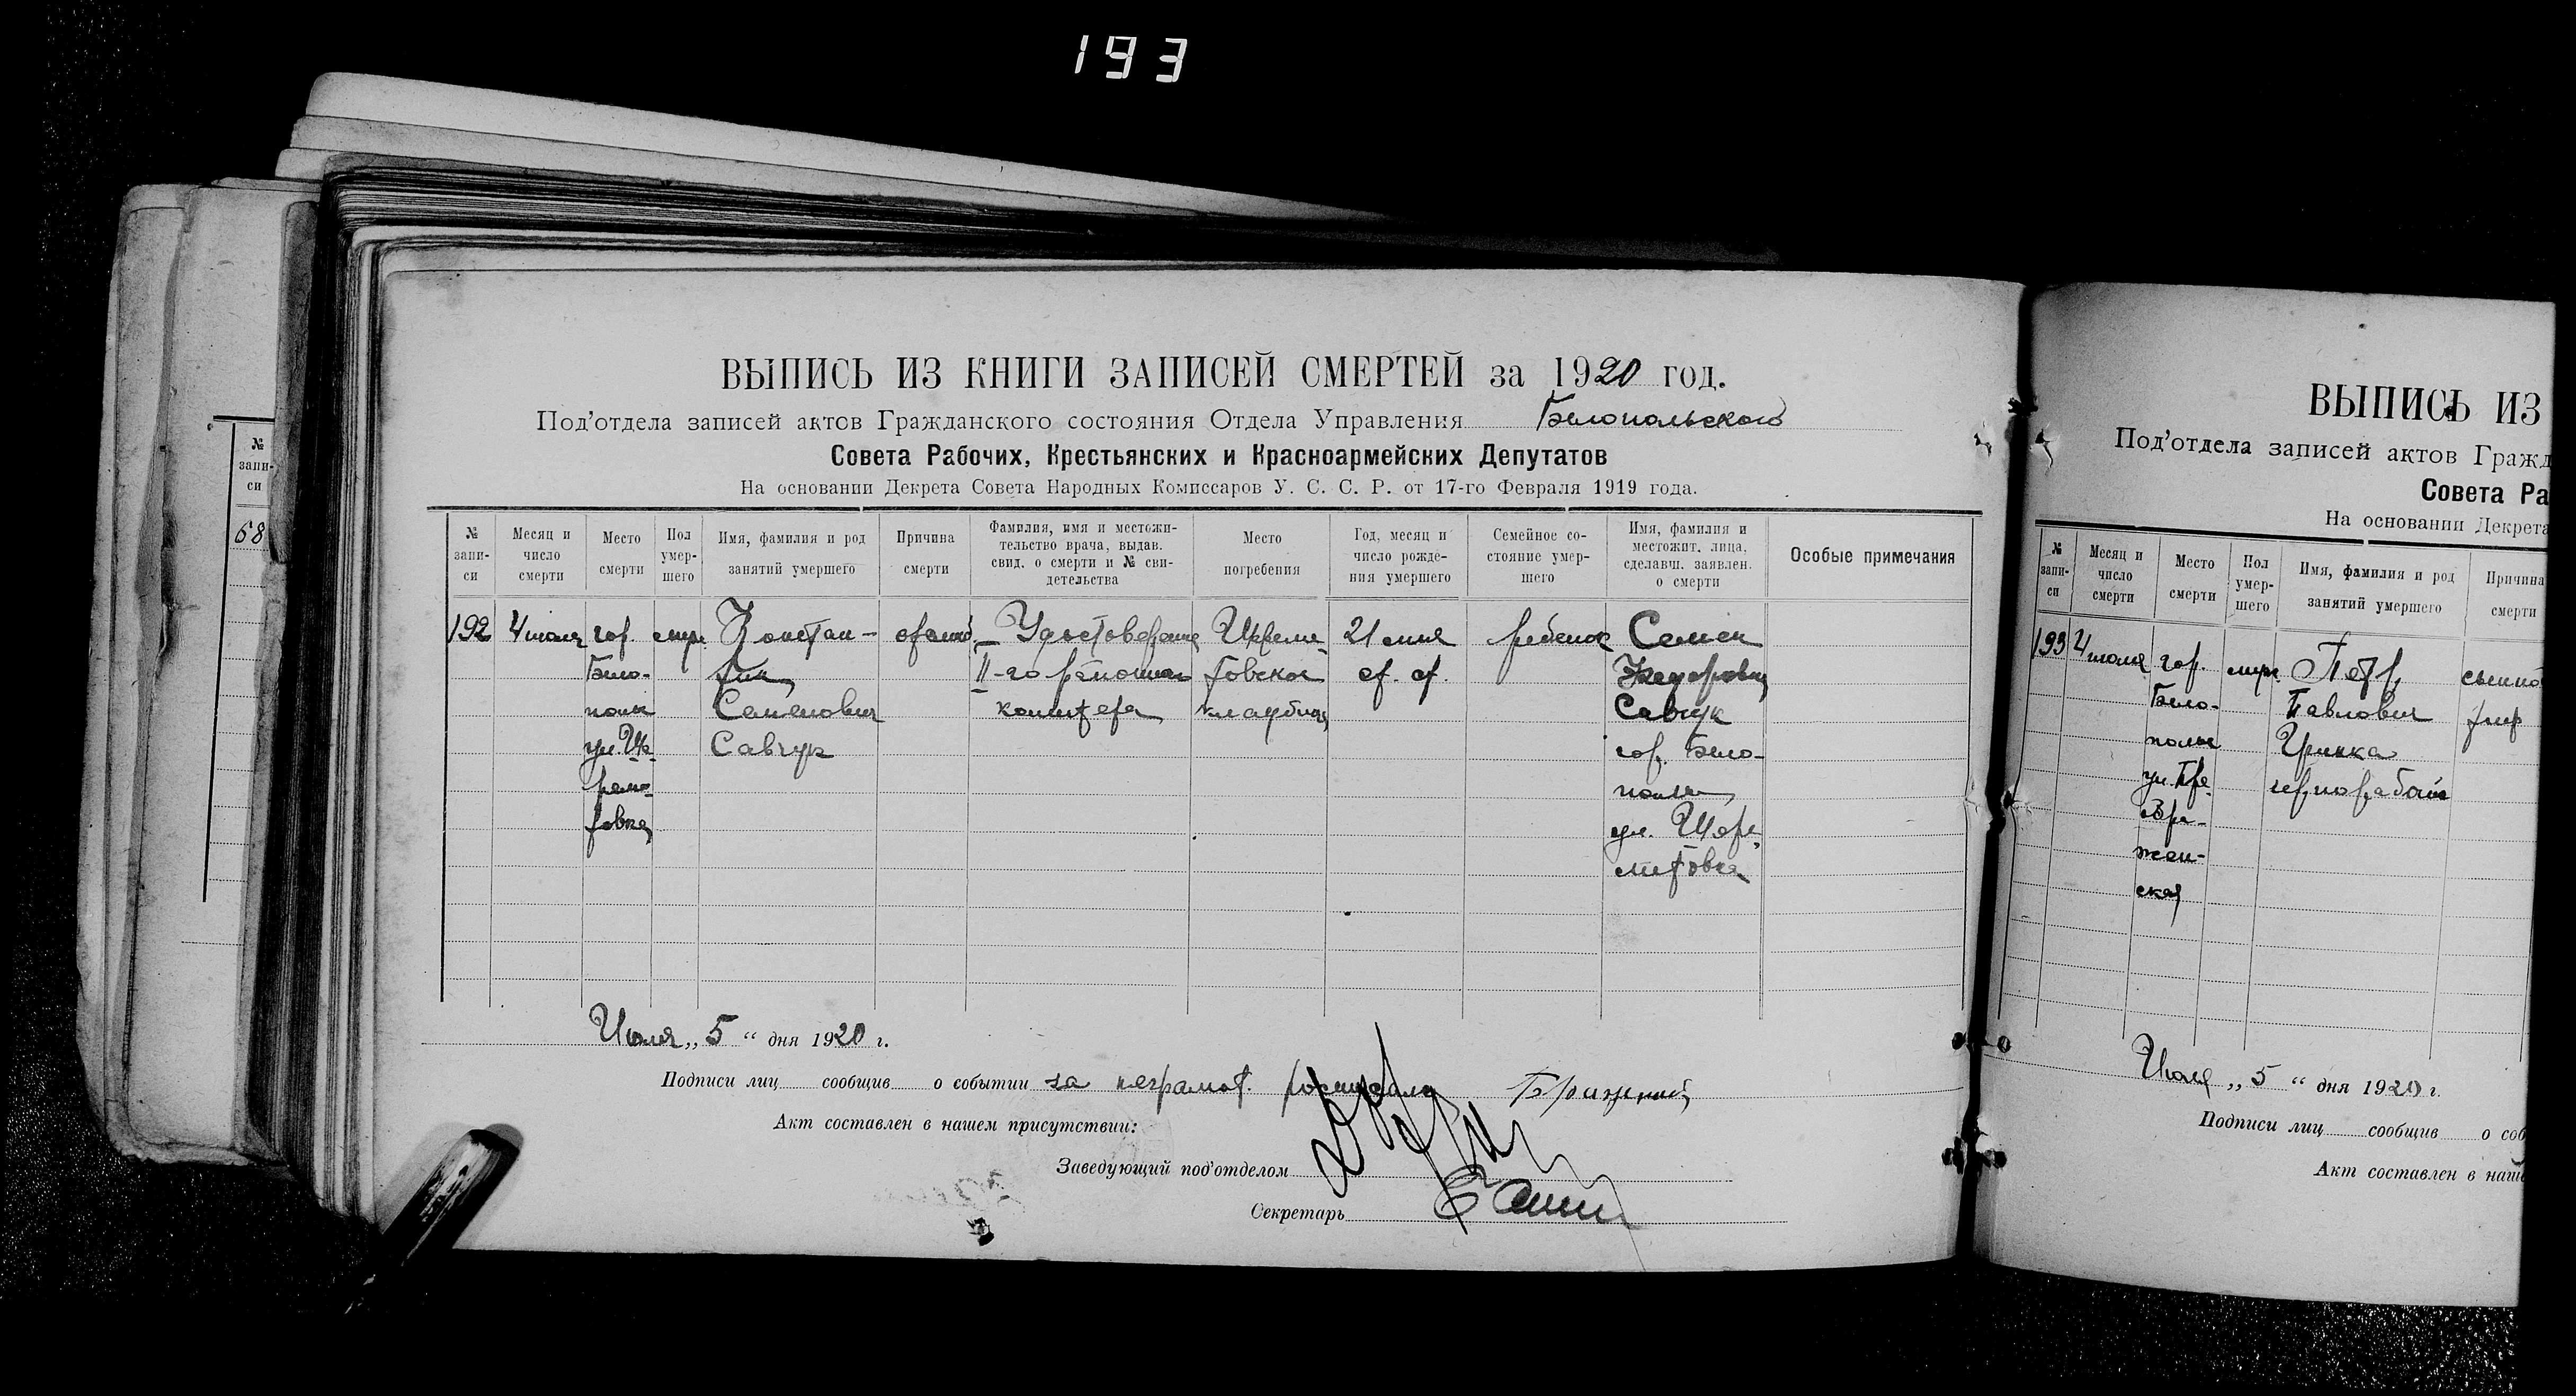 193
ВЫПИСЬ ИЗ КНИГИ ЗАПИСЕЙ СМЕРТЕЙ за 1920 год.
Под'отдела записей актов Гражданского состояния Отдела Управления Белопольского
Совета Рабочих, Крестьянских и Красноармейских Депутатов
На основании Декрета Совета Народных Комиссаров У. С. С. Р. от 17-го Февраля 1919 года.
№ запи-си
Месяц и число смерти
Место смерти
Пол умер-шего
Имя, фамилия и род занятий умершего
Причина смерти
Фамилия, имя и местожи-тельство врача, выдав. свид. о смерти и № сви-детельства
Место погребения
Год, месяц и число рожде-ния умершего
Семейное со-стояние умер-шего
Имя, фамилия и местожит. лица, сделавш. заявлен. о смерти
Особые примечания
192
4 июля
гор.
Бело-
полье
ул.
Константин
Семенович
Савчук
Удостоверение
II-го районного
комитета
кладбище
ребенок
Семен
Савчук
гор. Бело-
полье
ул.
Июля „ 5 “ дня 1920 г.
Подписи лиц сообщив о событии за неграмот.
Акт составлен в нашем присутствии:
Заведующий под'отделом
Секретарь
№
запи-
си
68
ВЫПИСЬ ИЗ
Под'отдела записей актов Гражд
Совета Ра
На основании Декрета
№ запи-си
Месяц и число смерти
Место смерти
Пол умер-шего
Имя, фамилия и род занятий умершего
Причина смерти
193
4 июля
гор.
Бело-
полье
ул. Пре
обра-
жен-
ская
Петр
Павлович
Гринка
чернорабочий
сыпной
тиф
Июля „ 5 “ дня 1920 г.
Подписи лиц сообщив о соб
Акт составлен в наше